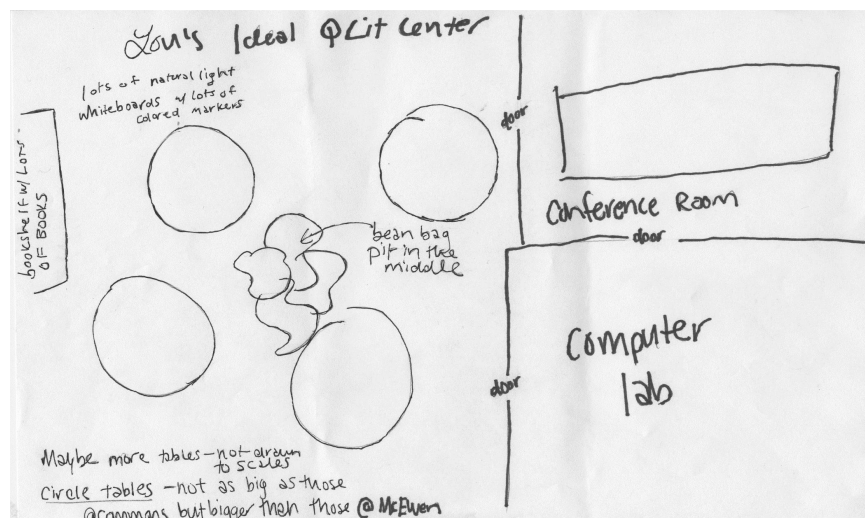 Lou's Ideal QLit Center
lots of natural light
whiteboards w/ lots of
colored markers
bookshelf w/ LOTS
OF BOOKS
bean bag
pit in the
middle
door
Conference Room
door
door
Computer
lab
Maybe more tables - not drawn
to scales
Circle tables - not as big as those
@commons but bigger than those @ McEwen